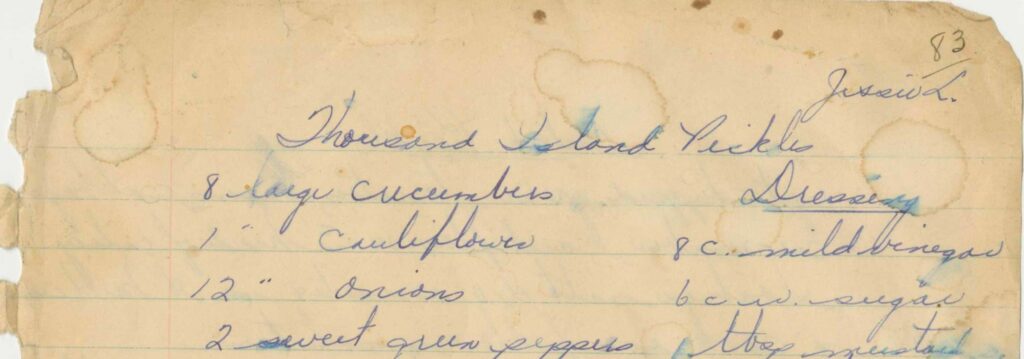 83
Jessie L.
Thousand Island Pickles
8 large cucumbers
1 " cauliflower
12 " onions
2 sweet green peppers
Dressing
8 c. mild vinegar
6 c w. sugar
tbsp mustard